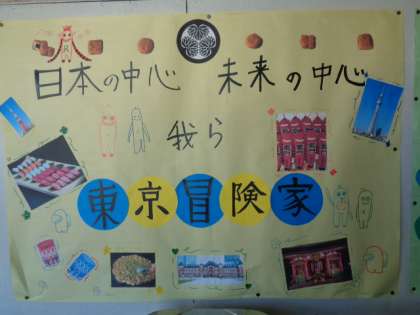 日本の中心　未来の中心
我ら
東京冒険家